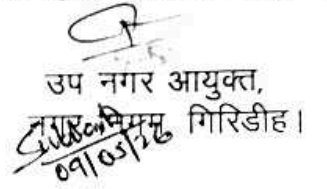 उप नगर आयुक्त,
नगर निगम गिरिडीह।
09/05/26